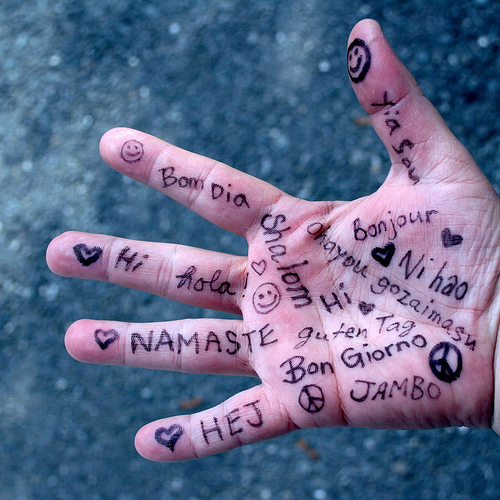 Yia Sou
Bom Dia
Hi
hola!
NAMASTE
HEJ
Shalom
Ohayou gozaimasu
Bonjour
Ni hao
Hi
guten Tag
Bon Giorno
JAMBO